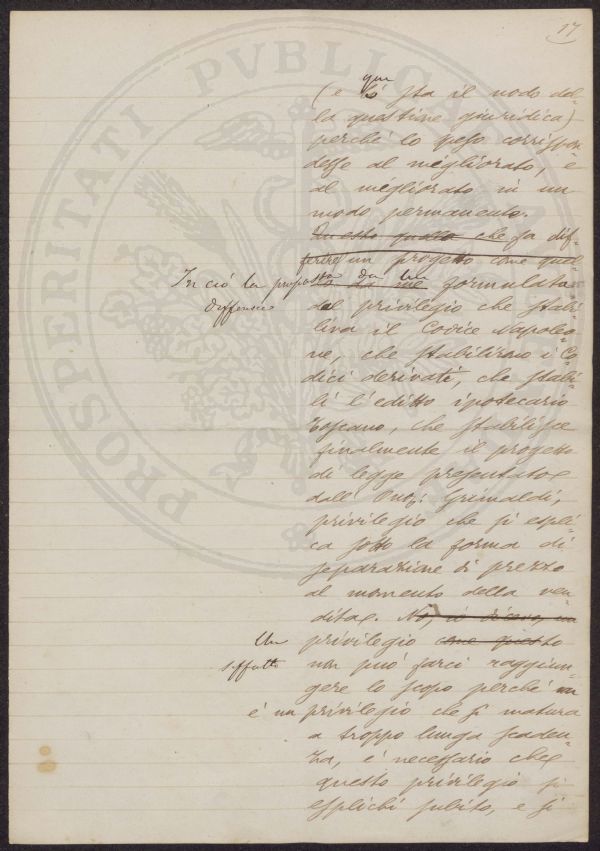 17
PROSPERITATI PVBLICAE
qui
(e lì sta il nodo del-
la questione giuridica)
perché lo peso corrispon
desse al migliorato, e
al migliorato in un
modo permanente.
Questo quello che fa dif-
ferire un progetto come quel-
In ciò la proposta da me formulata
differisce
dal privilegio che stabi-
liva il Codice Napoleo-
ne, che stabilirono i Co-
dici derivati, che stabi-
lì l'editto ipotecario
Toscano, che stabilisce
finalmente il progetto
di legge presentato
dall' On: Grimaldi,
privilegio che si espli-
ca sotto la forma di
separazione di prezzo
al momento della ven-
dita. No, io dicevo, un
Un privilegio come questo
siffatto non può farci raggiun-
gere lo scopo perché
è un privilegio che si matura
a troppo lunga scaden-
za, è necessario che
questo privilegio si
esplichi subito, e si